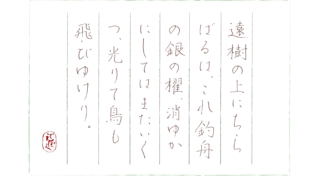 遠樹の上にちら
ばるは、これ釣舟
の銀の櫂、消ゆか
にしてはまたいく
つ、光りて鳥も
飛びゆけり。